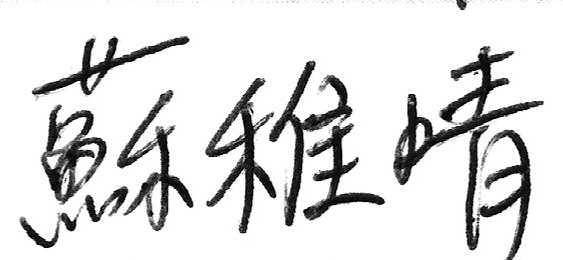 蘇稚晴